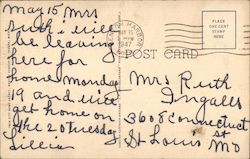 May 15 Mrs
Ruth i will
be leaving
here for
home monday
19 and will
get home on
the 20 tuesday
Lillian
HARBOR
MAY 15
1947
PLACE ONE
CENT
STAMP
HERE
POST CARD
Mrs Ruth
Ingalls
3608 Connecticut st
St Louis MO